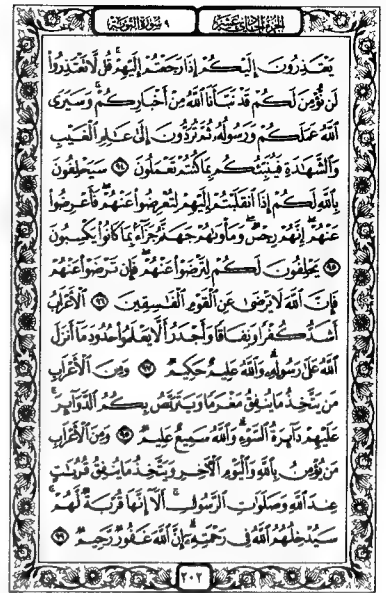 الجزء الحادي عشر ٩ سورة التوبة
يَعْتَذِرُونَ إِلَيْكُمْ إِذَا رَجَعْتُمْ إِلَيْهِمْ ۚ قُل لَّا تَعْتَذِرُوا
لَن نُّؤْمِنَ لَكُمْ قَدْ نَبَّأَنَا اللَّهُ مِنْ أَخْبَارِكُمْ ۚ وَسَيَرَى
اللَّهُ عَمَلَكُمْ وَرَسُولُهُ ثُمَّ تُرَدُّونَ إِلَىٰ عَالِمِ الْغَيْبِ
وَالشَّهَادَةِ فَيُنَبِّئُكُم بِمَا كُنتُمْ تَعْمَلُونَ ٩٤ سَيَحْلِفُونَ
بِاللَّهِ لَكُمْ إِذَا انقَلَبْتُمْ إِلَيْهِمْ لِتُعْرِضُوا عَنْهُمْ ۖ فَأَعْرِضُوا
عَنْهُمْ ۖ إِنَّهُمْ رِجْسٌ ۖ وَمَأْوَاهُمْ جَهَنَّمُ جَزَاءً بِمَا كَانُوا يَكْسِبُونَ
٩٥ يَحْلِفُونَ لَكُمْ لِتَرْضَوْا عَنْهُمْ ۖ فَإِن تَرْضَوْا عَنْهُمْ
فَإِنَّ اللَّهَ لَا يَرْضَىٰ عَنِ الْقَوْمِ الْفَاسِقِينَ ٩٦ الْأَعْرَابُ
أَشَدُّ كُفْرًا وَنِفَاقًا وَأَجْدَرُ أَلَّا يَعْلَمُوا حُدُودَ مَا أَنزَلَ
اللَّهُ عَلَىٰ رَسُولِهِ ۗ وَاللَّهُ عَلِيمٌ حَكِيمٌ ٩٧ وَمِنَ الْأَعْرَابِ
مَن يَتَّخِذُ مَا يُنفِقُ مَغْرَمًا وَيَتَرَبَّصُ بِكُمُ الدَّوَائِرَ ۚ
عَلَيْهِمْ دَائِرَةُ السَّوْءِ ۗ وَاللَّهُ سَمِيعٌ عَلِيمٌ ٩٨ وَمِنَ الْأَعْرَابِ
مَن يُؤْمِنُ بِاللَّهِ وَالْيَوْمِ الْآخِرِ وَيَتَّخِذُ مَا يُنفِقُ قُرُبَاتٍ
عِندَ اللَّهِ وَصَلَوَاتِ الرَّسُولِ ۚ أَلَا إِنَّهَا قُرْبَةٌ لَّهُمْ ۚ
سَيُدْخِلُهُمُ اللَّهُ فِي رَحْمَتِهِ ۗ إِنَّ اللَّهَ غَفُورٌ رَّحِيمٌ ٩٩
٢٠٢